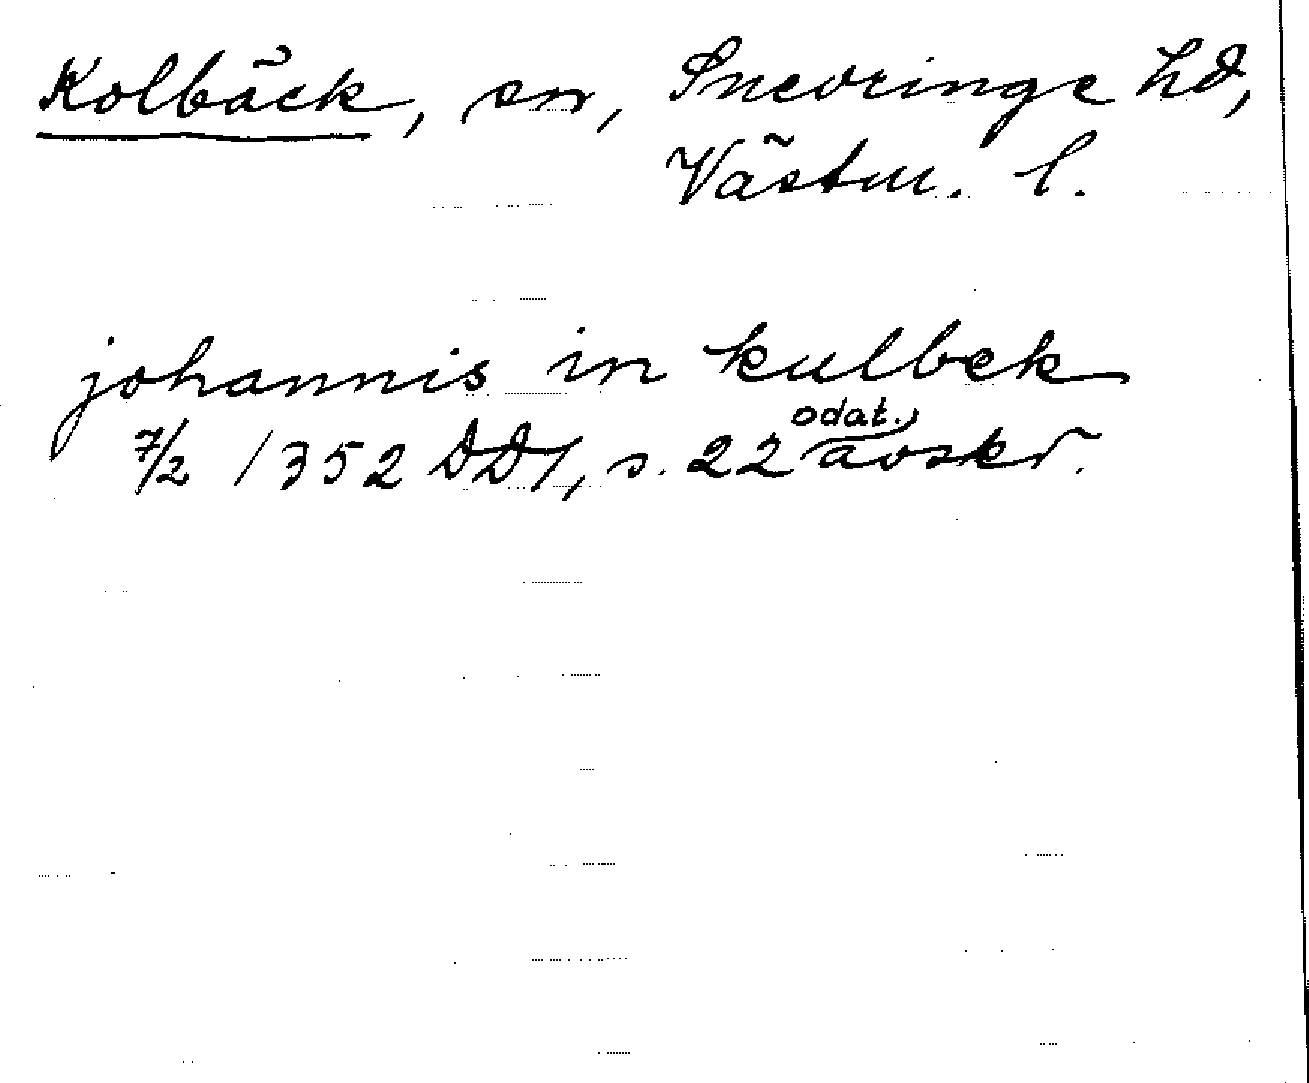 Kolbäck, sn, Snevringe hd,
Västm. l.
johannis in kulbek
7/2 1352 DD1, s. 22 odat. avskr.